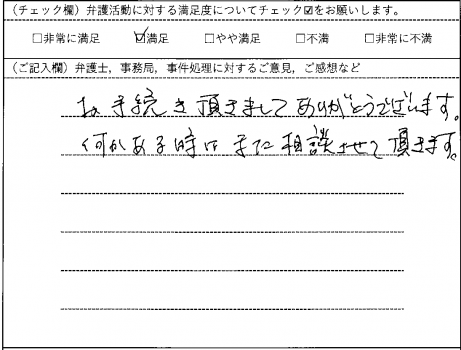 (チェック欄) 弁護活動に対する満足度についてチェック☑をお願いします。
□非常に満足 ☑満足 □やや満足 □不満 □非常に不満
(ご記入欄) 弁護士，事務局，事件処理に対するご意見，ご感想など
お手続き頂きましてありがとうございます。
何かある時はまたご相談させて頂きます。